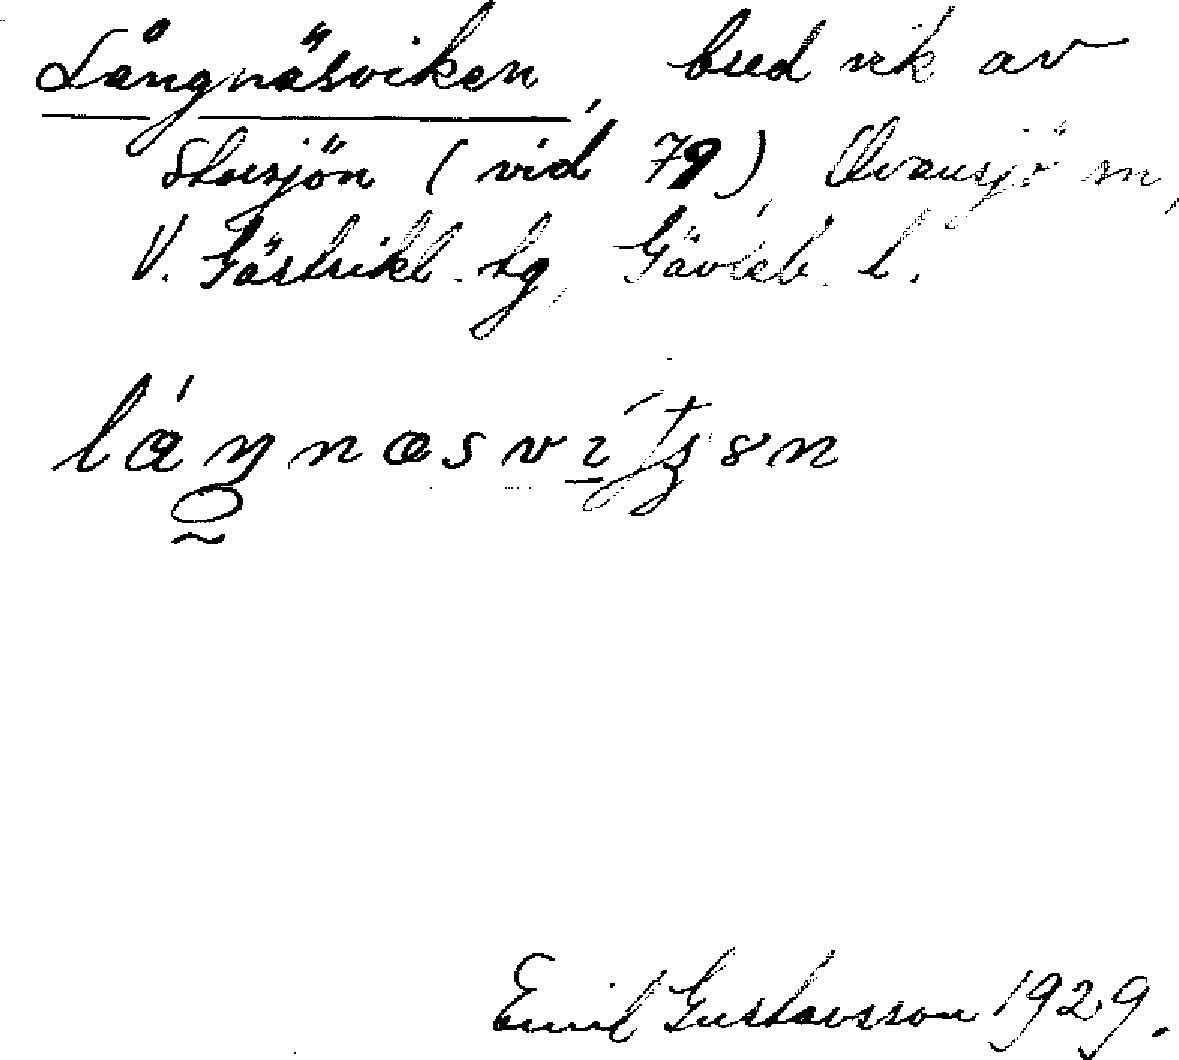 Långnäsviken, bred vik av
Storsjön (vid 79), Ovansjö sn,
V. Gästrikl. hg, Gävleb. l.
Emil Gustavsson 1929.